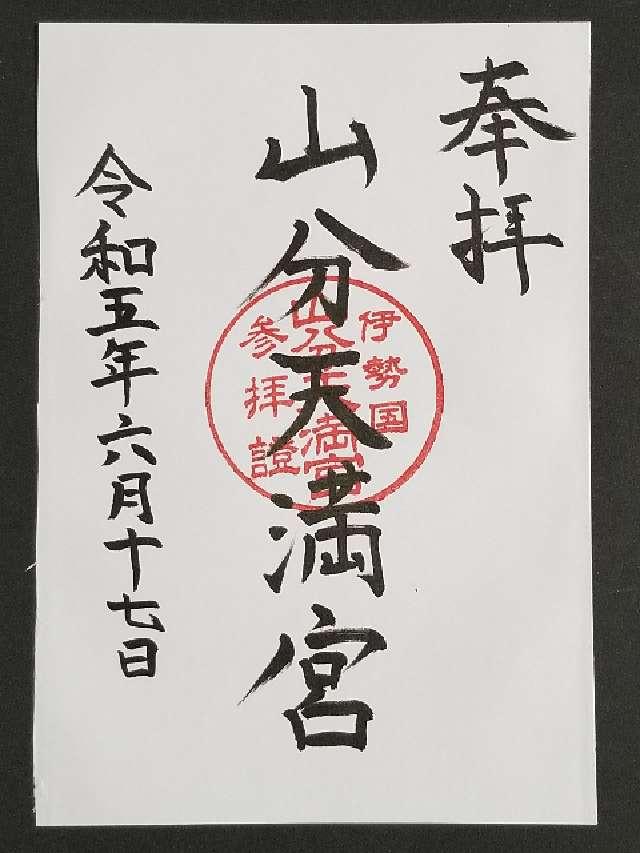 奉拝
山分天満宮
伊勢国
山分天満宮
参拝證
令和五年六月十七日